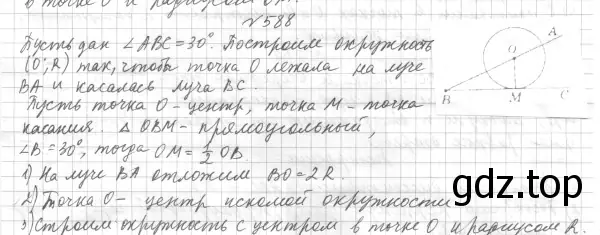 в точке О и радиусом
№588
Пусть дан ∠ABC=30°. Построим окружность
(O;R) так, чтобы точка O лежала на луче
BA и касалась луча BC.
Пусть точка O - центр, точка M - точка
касания. △ OBM - прямоугольный,
∠B=30°, тогда OM=1/2 OB.
1) На луче BA отложим BO=2R.
2) Точка O- центр искомой окружности
3) Строим окружность с центром в точке O и радиусом R.
O
A
B
M
C
gdz.top